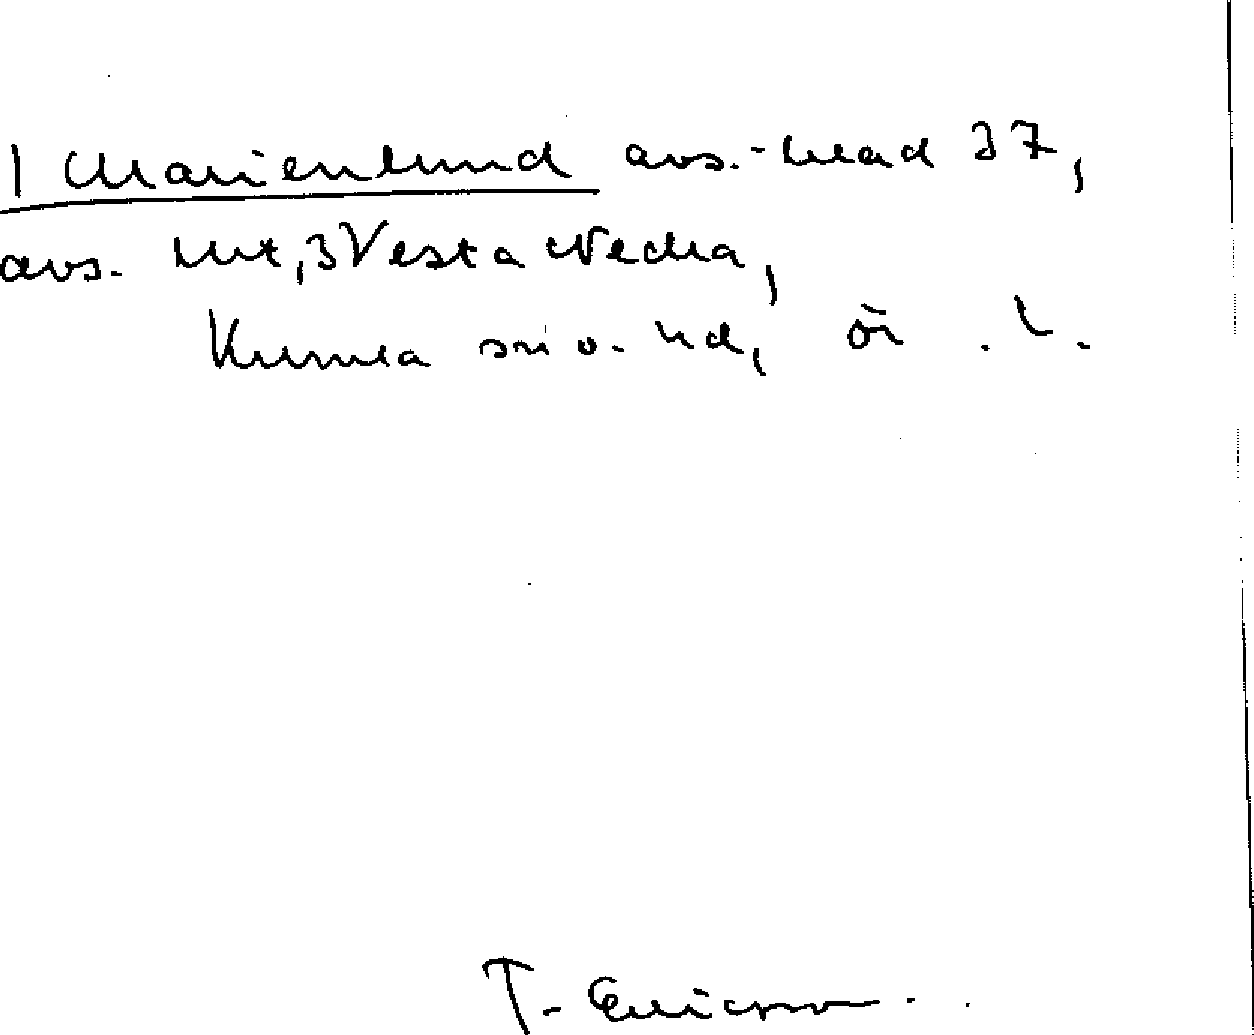 1 Marienlund avs.-lad 37,
avs. fr. 3 Vesta Nedra,
Kumla sn o. hd, ör . l.
T. Ericson